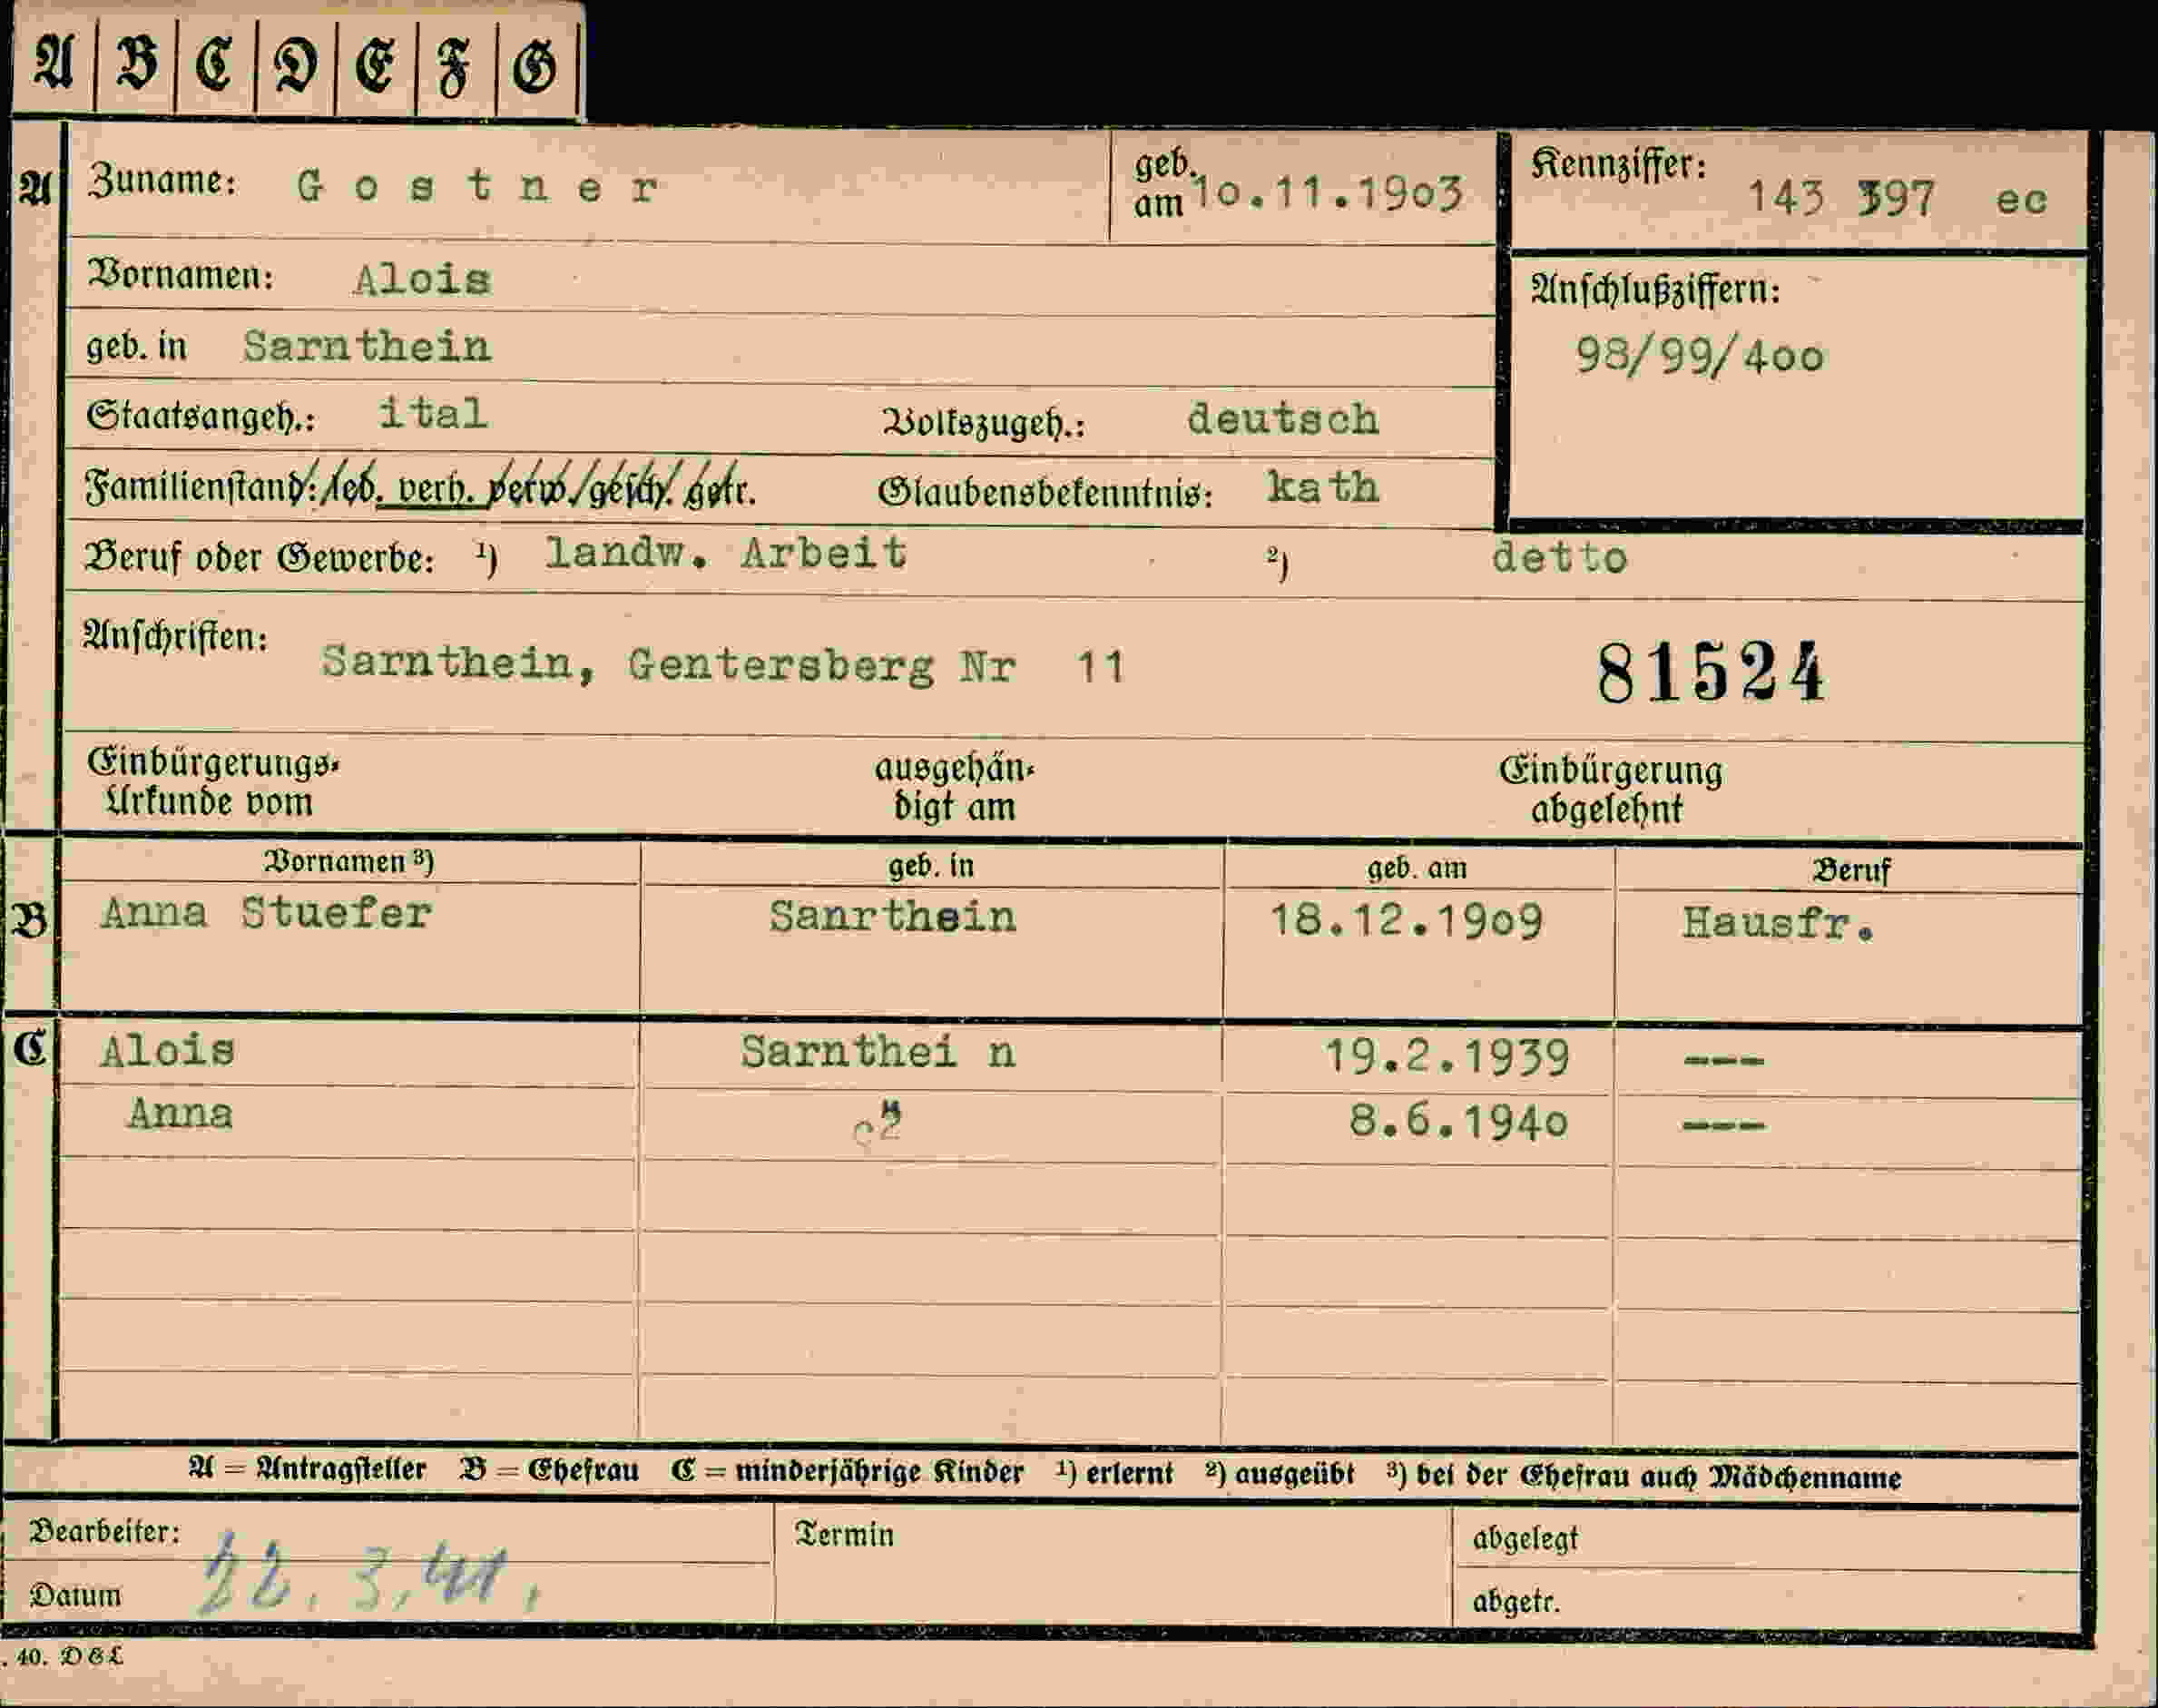 A B C D E F G
A Zuname: Gostner geb. am 10.11.1903 Kennziffer: 143 397 ec
Vornamen: Alois
Anschlußziffern:
geb. in Sarnthein 98/99/400
Staatsangeh.: ital Volkszugeh.: deutsch
Familienstand: led. verh. verw. gesch. getr. Glaubensbekenntnis: kath
Beruf oder Gewerbe: ¹) landw. Arbeit ²) detto
Anschriften: Sarnthein, Gentersberg Nr 11 81524
Einbürgerungs- ausgehän- Einbürgerung
Urkunde vom digt am abgelehnt
Vornamen ³) geb. in geb. am Beruf
B Anna Stuefer Sanrthein 18.12.1909 Hausfr.
C Alois Sarnthei n 19.2.1939 ---
Anna " 8.6.1940 ---
A = Antragsteller B = Ehefrau C = minderjährige Kinder ¹) erlernt ²) ausgeübt ³) bei der Ehefrau auch Mädchenname
Bearbeiter: Termin abgelegt
Datum 22.3.41. abgetr.
. 40. D & L